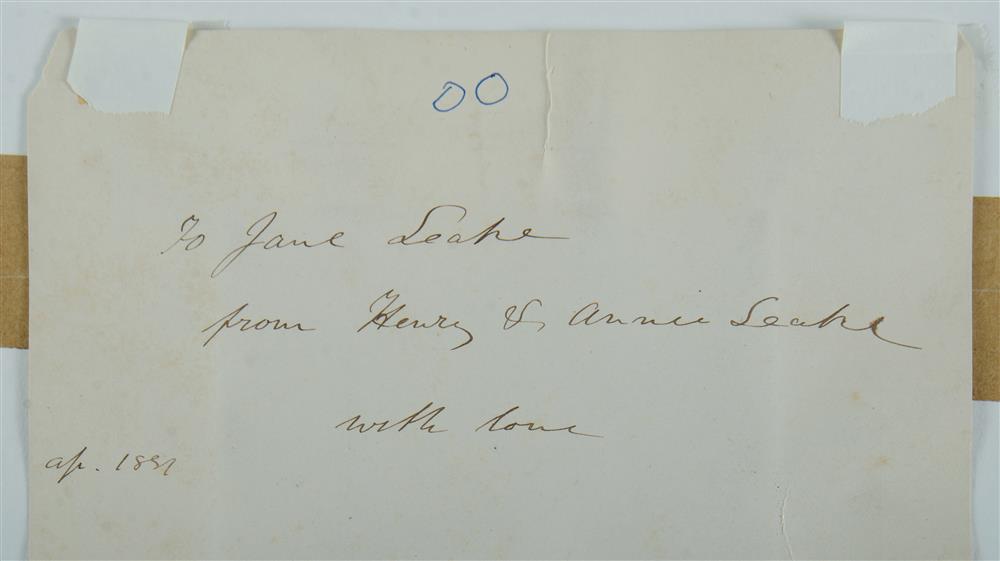 00
To Jane Leake
from Henry & Annie Leake
with love
ap. 1881